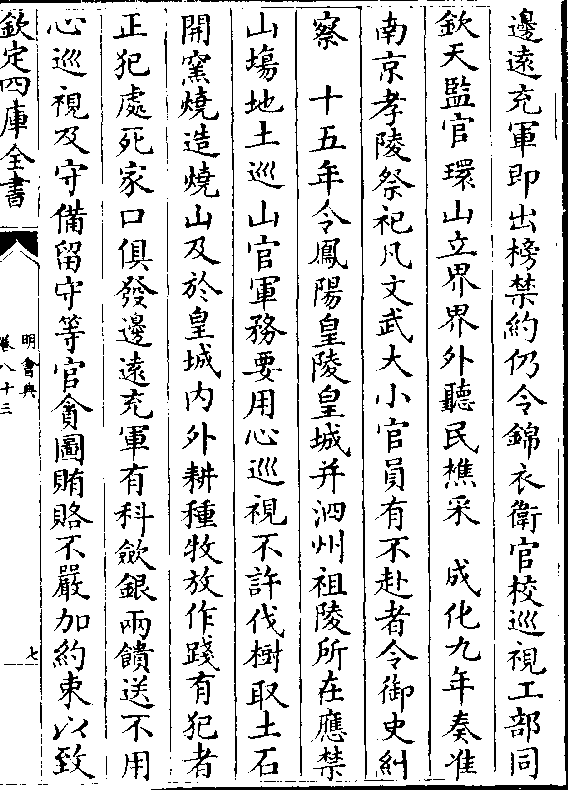 邊遠充軍即出榜禁約仍令錦衣衛官校巡視工部同
欽天監官環山立界界外聽民樵采　成化九年奏准
南京孝陵祭祀凡文武大小官員有不赴者令御史糾
察　十五年令鳳陽皇陵皇城并泗州祖陵所在應禁
山塲地土巡山官軍務要用心巡視不許伐樹取土石
開窯燒造燒山及於皇城内外耕種牧放作踐有犯者
正犯處死家口俱發邊遠充軍有科歛銀兩饋送不用
心巡視及守備留守等官貪圖賄賂不嚴加約束以致
欽定四庫全書
明會典
卷八十三
七